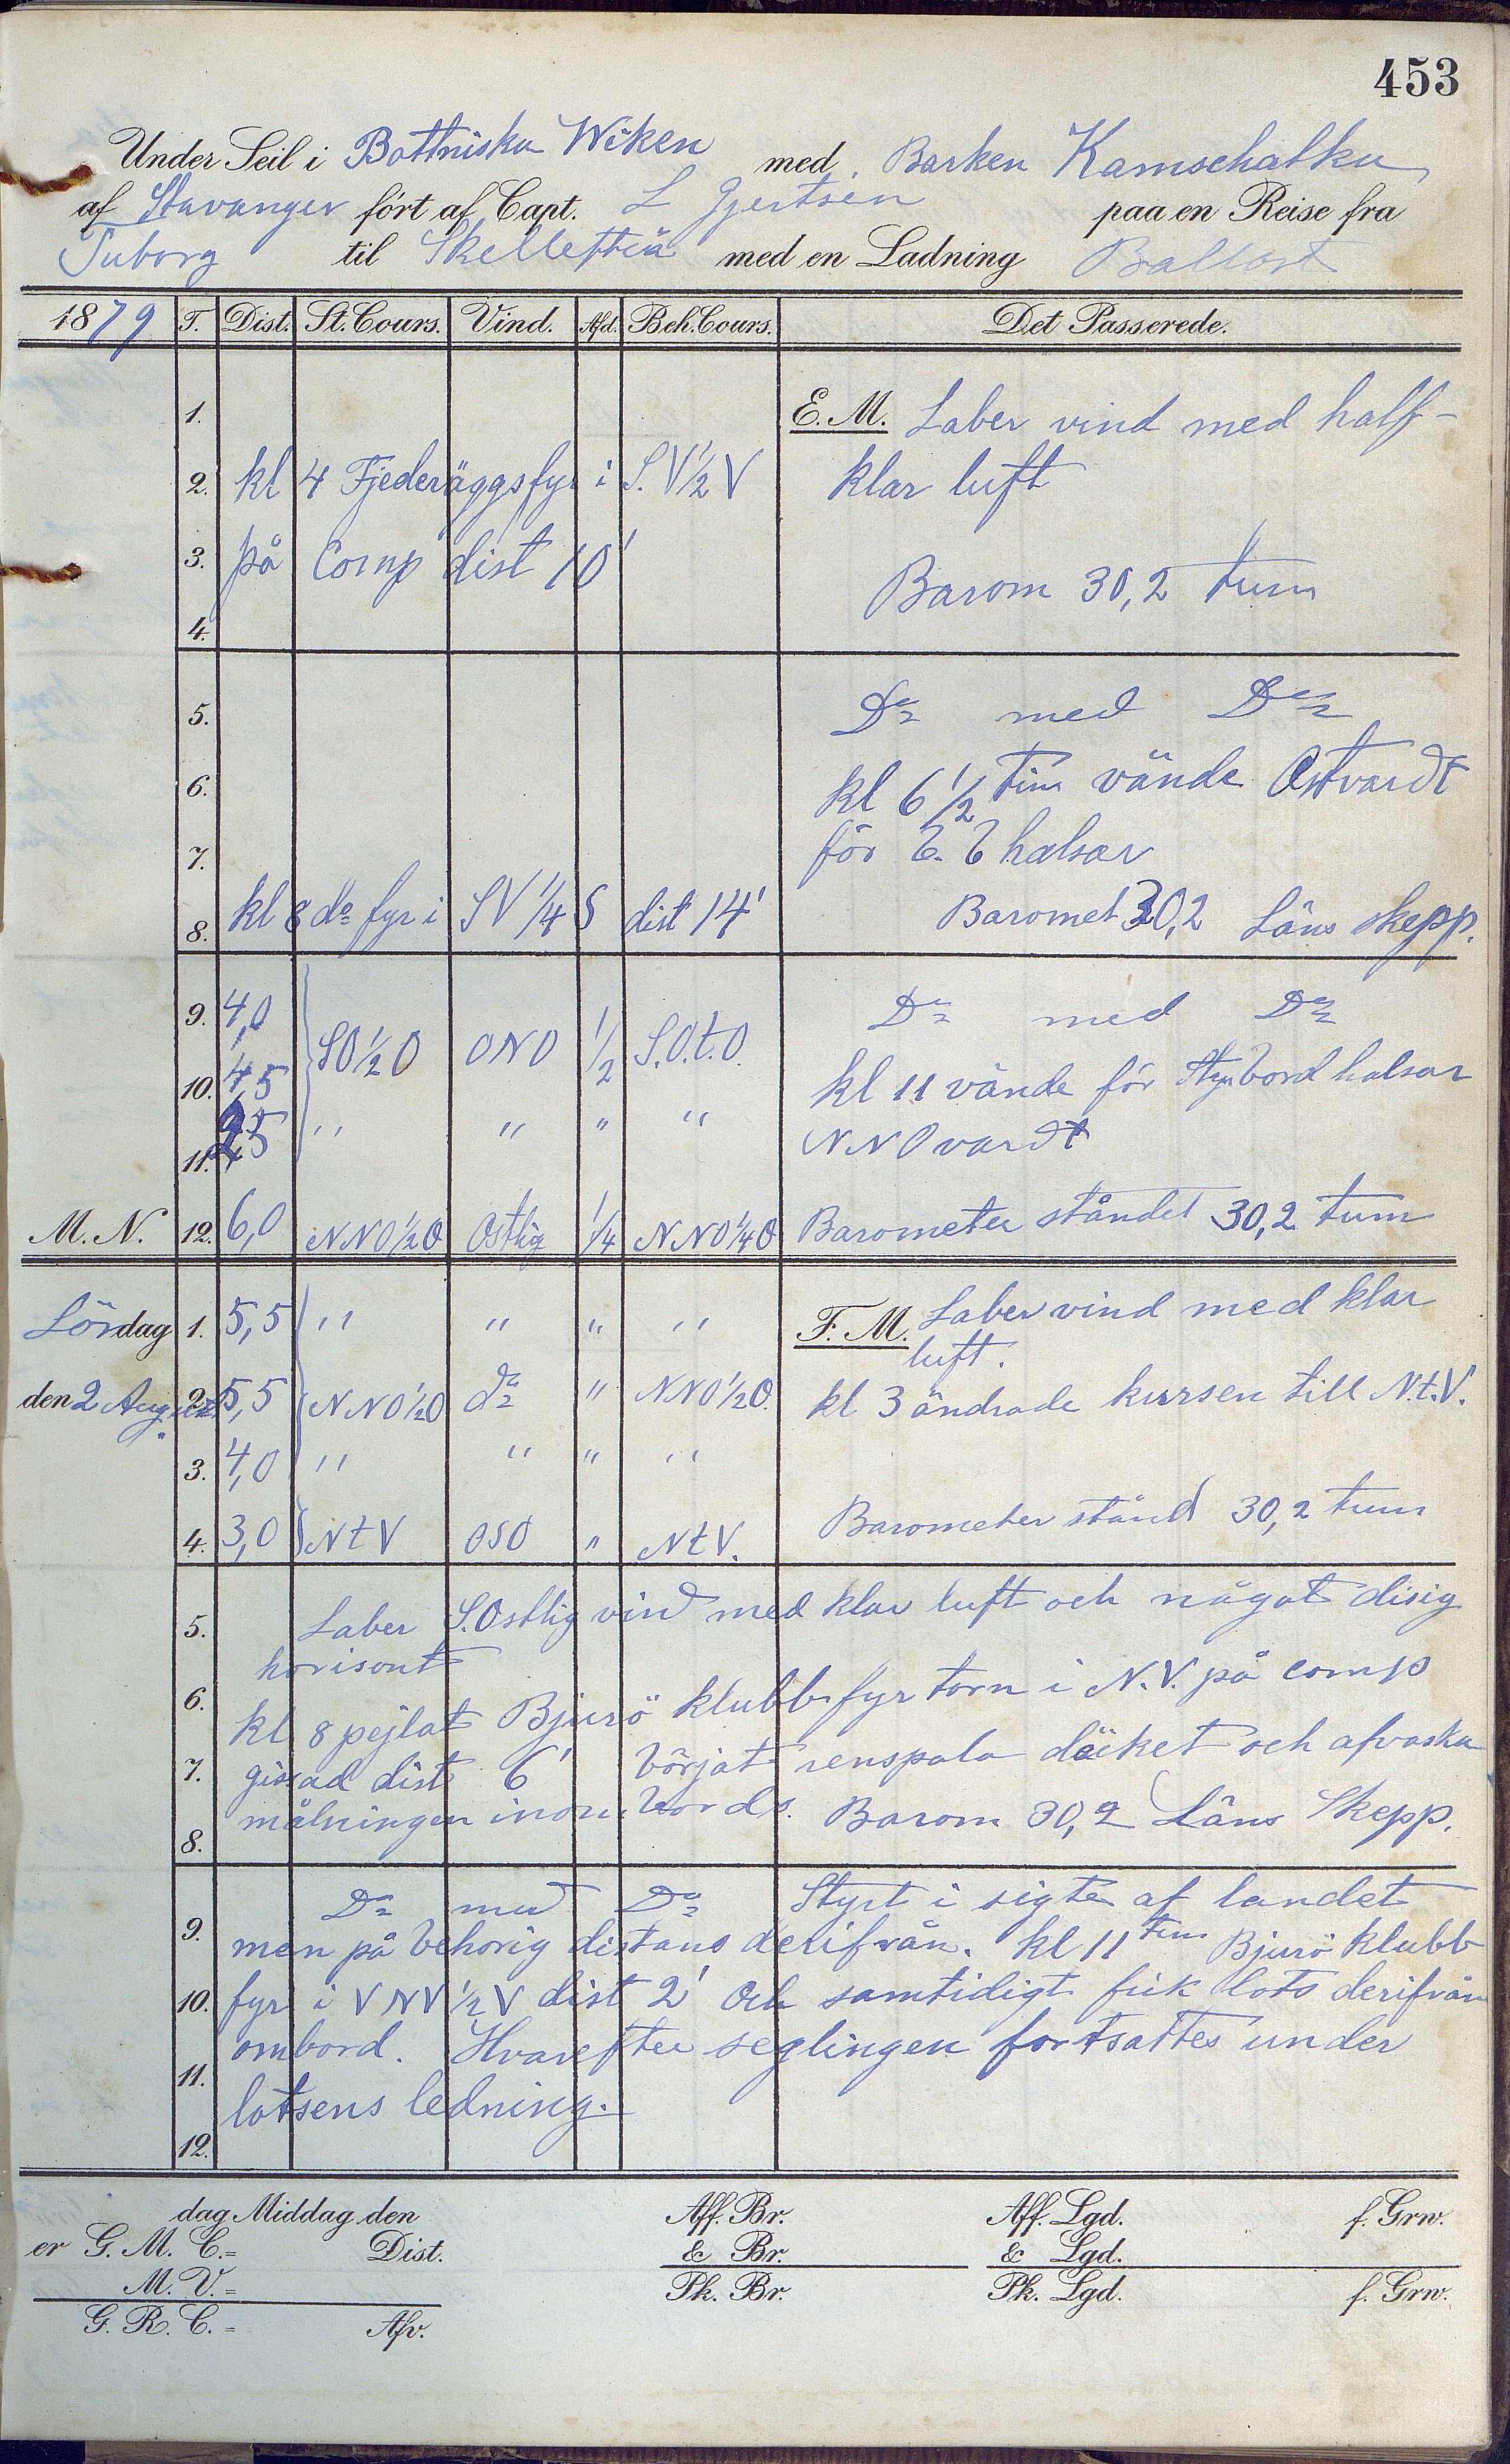 453
Under Seil i Bottniska Wiken med Barken Kamschatka
af Stavanger fört af Capt. L Gjertsen paa en Reise fra
Tuborg til Skellefteå med en Ladning Ballast
1879 T. Dist. St. Cours. Vind. Afd. Beh. Cours. Det Passerede.
1. E. M. Laber vind med half-
2. kl 4 Fjederäggsfyr i S.V 1/2 V klar luft
3. på Comp dist 10' Barom 30,2 tum
4.
5. Do med Do
6. kl 6 1/2 tim vände Ostvardt
7. för B. B halsar
8. kl 8 do fyr i SV 1/4 S dist 14' Baromet 30,2 Läns skepp.
9. 4,0 SO 1/2 O ONO 1/2 S.O.t.O. Do med Do
10. 4,5 kl 11 vände för Styrbord halsar
11. " " " " NNO vardt
M. N. 12. 6,0 NNO 1/2 O Ostlig 1/4 NNO 1/4 O Barometer ståndet 30,2 tum
Lördag 1. 5,5 " " " " F. M. Laber vind med klar
luft.
den 2 Aug 2. 5,5 NNO 1/2 O do " NNO 1/2 O. kl 3 ändrade kursen till N.t.V.
3. 4,0 " " " "
4. 3,0 NtV OSO " NtV. Barometer stånd 30,2 tum
5. Laber S.Ostlig vind med klar luft och något disig
horisont
6. kl 8 pejlat Bjurö klubb fyr torn i N.V. på comp
7. gissad dist 6' börjat renspola däcket och afvaska
8. målningen inombords. Barom 30,2 Läns Skepp.
9. Do med Do Styrt i sigte af landet
men på behörig distans derifrån. kl 11 tim Bjurö klubb
10. fyr i VNV 1/2 V dist 2' Och samtidigt fick lots derifrån
11. ombord. Hvarefter seglingen fortsattes under
lotsens ledning.
12.
dag Middag den Aff. Br. Aff. Lgd. f. Grw.
er G. M. C.= Dist. & Br. & Lgd.
M. V.= Pk. Br. Pk. Lgd. f. Grw.
G. R. C.= Afv.